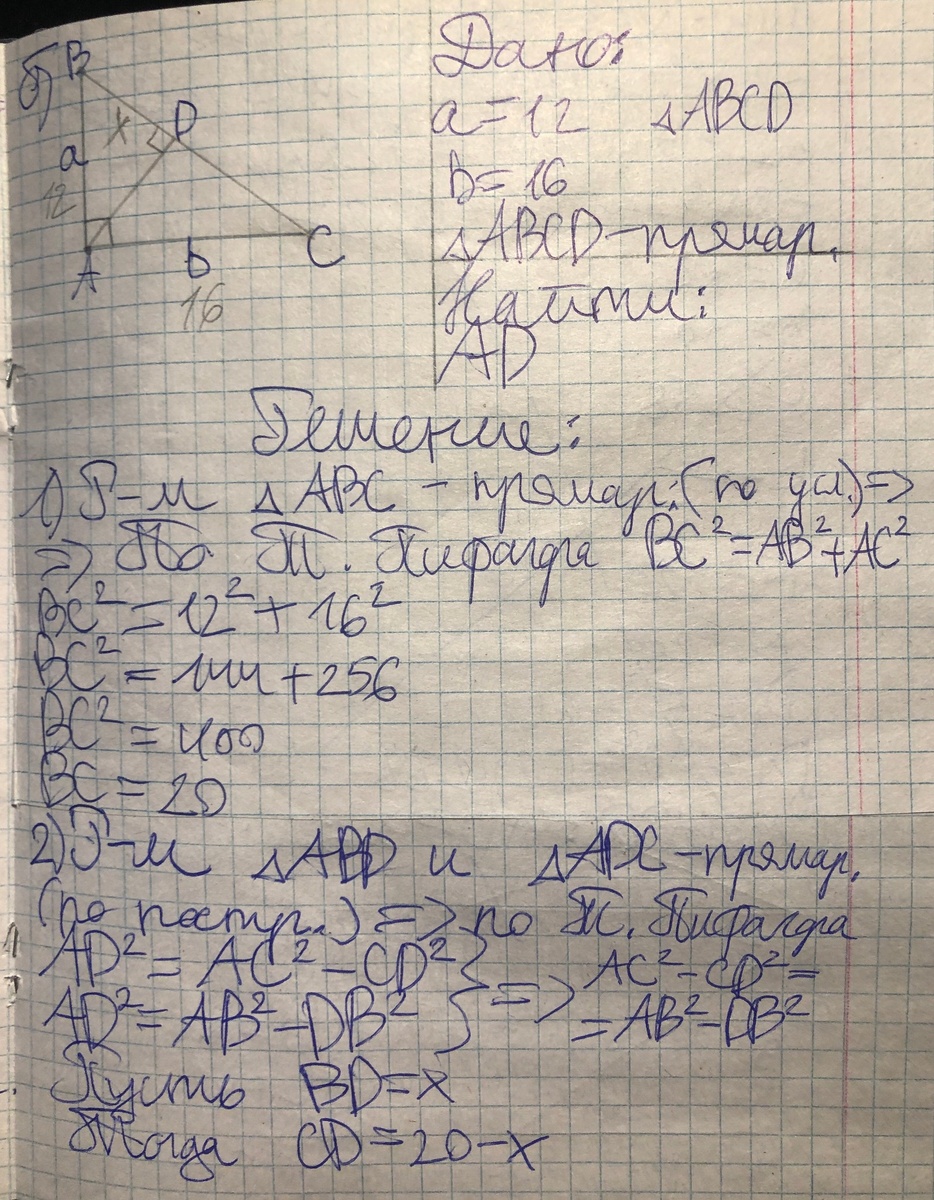 б)
B
D
x
a
12
A
b
C
16
Дано:
a=12 △ABCD
b=16
△ABCD-прямоуг.
Найти:
AD
Решение:
1) Р-м △ABC - прямоуг. (по усл.) =>
=> По Т. Пифагора BC²=AB²+AC²
BC²=12²+16²
BC²=144+256
BC²=400
BC=20
2) Р-м △ABD и △ADC-прямоуг.
(по постр.) => по Т. Пифагора
AD²=AC²-CD² } => AC²-CD²=
AD²=AB²-DB² =AB²-DB²
Пусть BD=x
Тогда CD=20-x